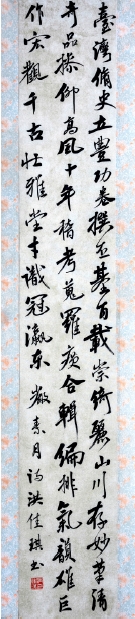 臺灣脩史立豐功卷撰丕基百載崇綺麗山川存妙筆清
奇品藻仰高風十年稽考蒐羅廣合輯編排氣韻雄巨
作宏觀千古壯雅堂才識冠瀛東 嚴素月詩 洪佳琪書